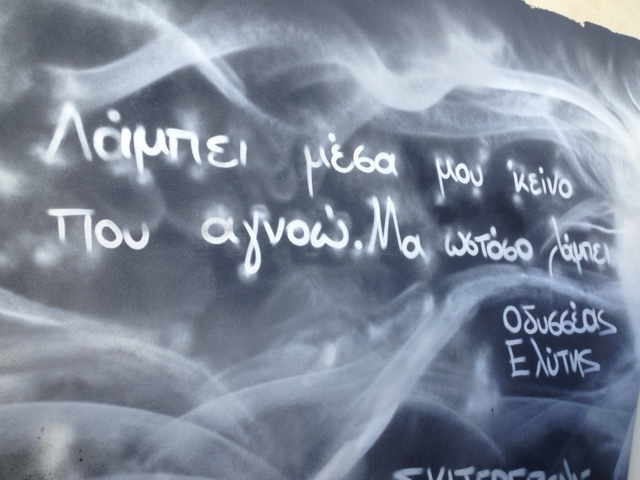 Λάμπει μέσα μου 'κείνο
Που αγνοώ. Μα ωστόσο λάμπει
Οδυσσέας
Ελύτης